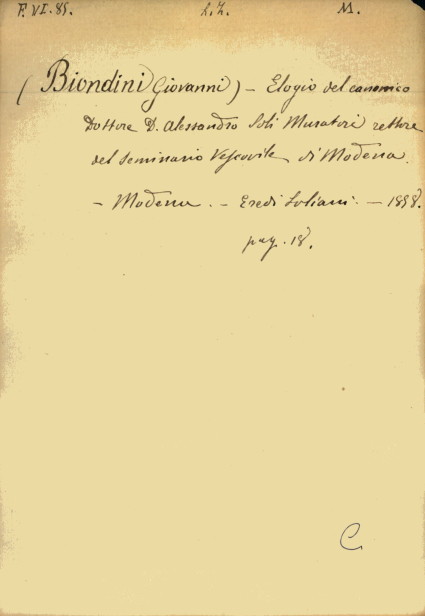 F. VI. 85. L. Z. M.
(Biondini Giovanni) - Elogio del canonico
Dottore D. Alessandro Soli Muratori rettore
del seminario Vescovile di Modena.
- Modena. - Eredi Soliani. - 1858.
pag. 18.
C